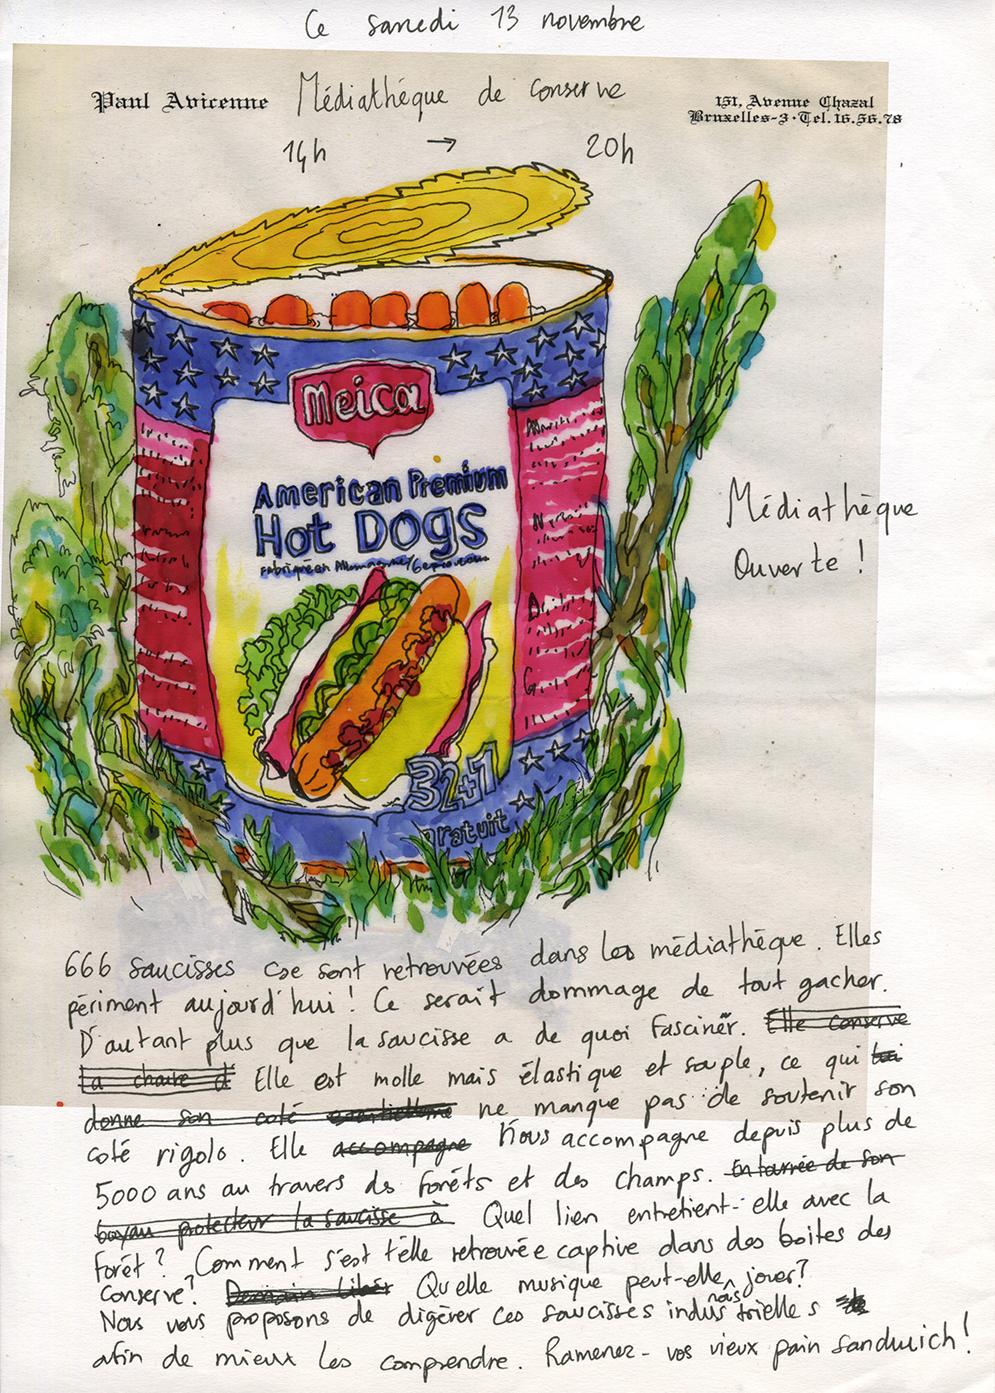 Ce samedi 13 novembre
Paul Avicenne
Médiathèque de conserve
151, Avenue Chazal
Bruxelles-3 · Tel. 16.56.78
14h → 20h
Meica
American Premium
Hot Dogs
Fabriqué en
32+1
gratuit
Médiathèque
Ouverte !
666 saucisses se sont retrouvées dans les médiathèque. Elles
périment aujourd'hui ! Ce serait dommage de tout gacher.
D'autant plus que la saucisse a de quoi fasciner. Elle conserve
la chaire d Elle est molle mais élastique et souple, ce qui lui
donne son coté ne manque pas de soutenir son
coté rigolo. Elle accompagne Nous accompagne depuis plus de
5000 ans au travers des forêts et des champs. Entourée de son
boyau protecteur la saucisse a Quel lien entretient-elle avec la
forêt ? Comment s'est t'elle retrouvée captive dans des boites des
conserve ? Demain libér Quelle musique peut-elle nous jouer ?
Nous vous proposons de digérer ces saucisses industrielles
afin de mieux les comprendre. Ramenez-vos vieux pain sandwich !